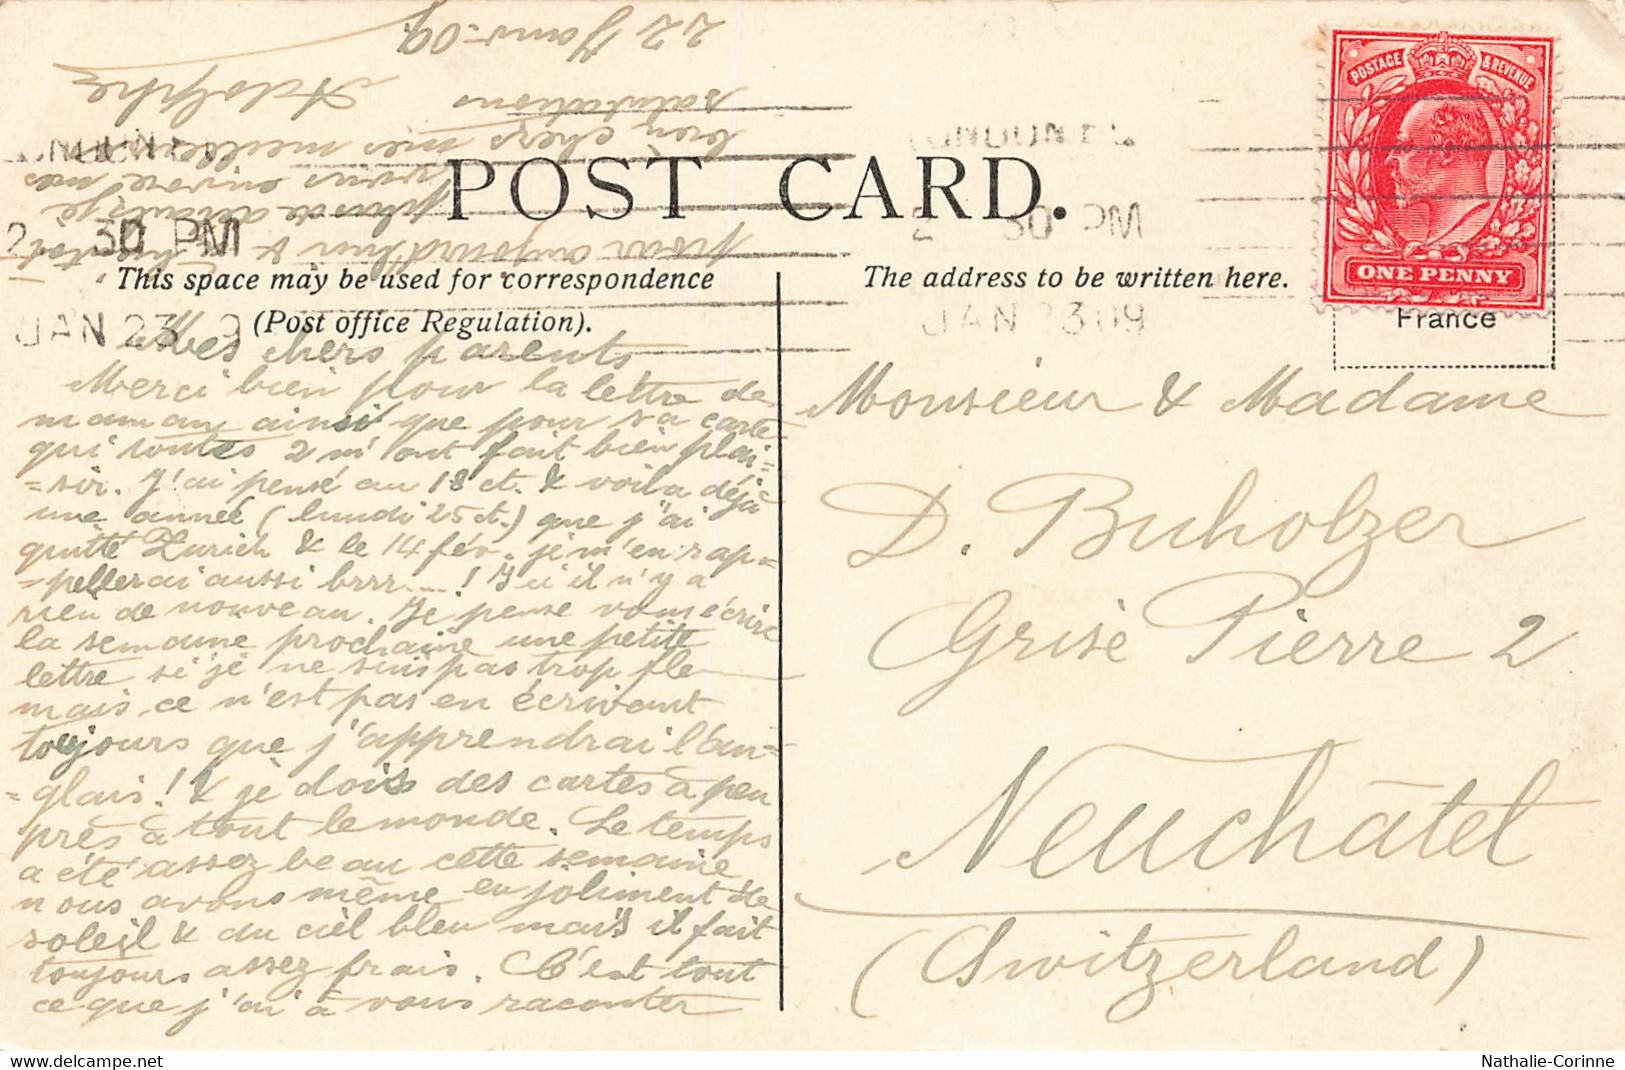 POST CARD.
This space may be used for correspondence
(Post office Regulation).
The address to be written here.
POSTAGE & REVENUE
ONE PENNY
France
30 PM
JAN 23 9
30 PM
JAN 23 09
Mes chers parents
Merci bien pour la lettre de
maman ainsi que pour sa carte
qui toutes 2 m'ont fait bien plai-
-sir. J'ai pensé au 18 ct. & voila déjà
une année (lundi 25 ct.) que j'ai
quitté Zurich & le 14 fév. je m'en rap-
-pellerai aussi brrr....! Ici il n'y a
rien de nouveau. Je pense vous écrire
la semaine prochaine une petite
lettre si je ne suis pas trop fle
mais ce n'est pas en écrivant
toujours que j'apprendrai l'an-
-glais! & je dois des cartes à peu
près à tout le monde. Le temps
a été assez beau cette semaine
nous avons même eu joliment de
soleil & du ciel bleu mais il fait
toujours assez frais. C'est tout
ce que j'ai à vous raconter
pour aujourd'hui &
plus de
vous envoie mes
bien chers mes meilleures
salutations
Adolphe
22 Janv. 09.
Monsieur & Madame
D. Buholzer
Grise Pierre 2
Neuchâtel
(Switzerland)
Nathalie-Corinne